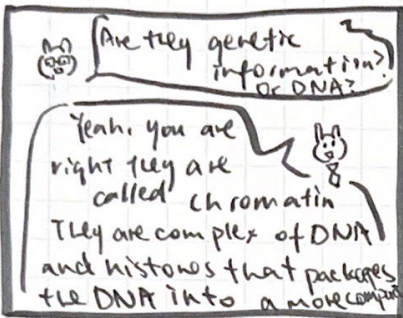 Are they genetic
information?
Or DNA?
Yeah, you are
right they are
called chromatin
They are complex of DNA
and histones that packages
the DNA into a more compact